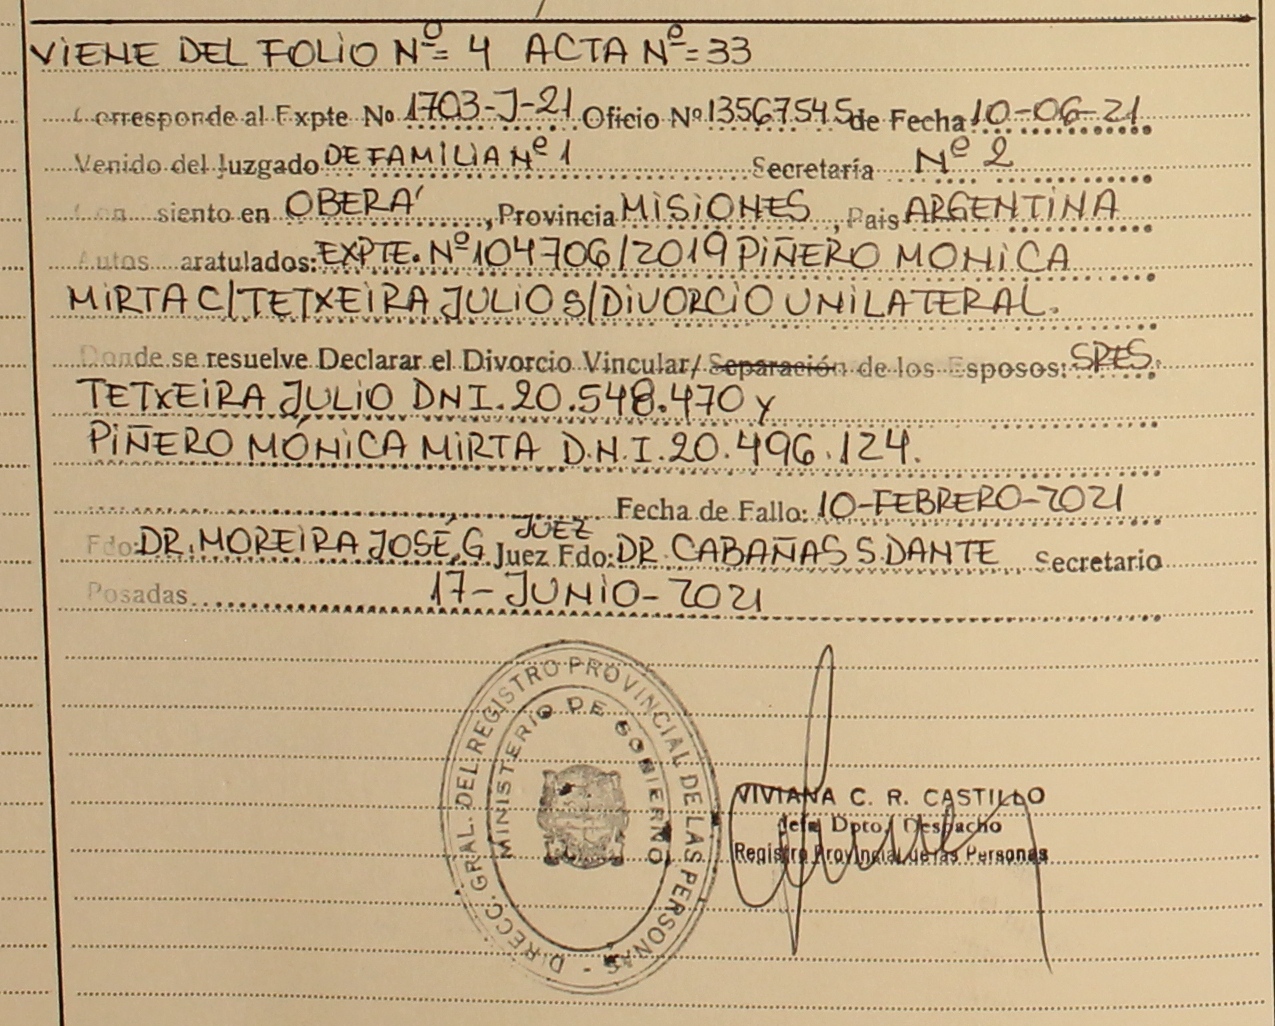 VIENE DEL FOLIO Nº= 4 ACTA Nº= 33
Corresponde al Expte Nº 1703-J-21 Oficio Nº 13567545 de Fecha 10-06-21
Venido del Juzgado DE FAMILIA Nº 1 Secretaría Nº 2
siento en OBERA', Provincia MISIONES, Pais ARGENTINA
Autos aratulados: EXPTE. Nº 104706/2019 PIÑERO MONICA
MIRTA C/TETXEIRA JULIO S/DIVORCIO UNILATERAL.
Donde se resuelve Declarar el Divorcio Vincular/ Separación de los Esposos: SRES.
TETXEIRA JULIO DNI. 20.548.470 y
PIÑERO MÓNICA MIRTA D.N.I. 20.496.124.
Fecha de Fallo: 10-FEBRERO-2021
JUEZ
Fdo: DR. MOREIRA JOSÉ, G Juez Fdo: DR. CABAÑAS S. DANTE Secretario
Posadas 17-JUNIO-2021
DIRECC. GRAL. DEL REGISTRO PROVINCIAL DE LAS PERSONAS -
MINISTERIO DE GOBIERNO
VIVIANA C. R. CASTILLO
Jefa Dpto. Despacho
Registro Provincial de las Personas